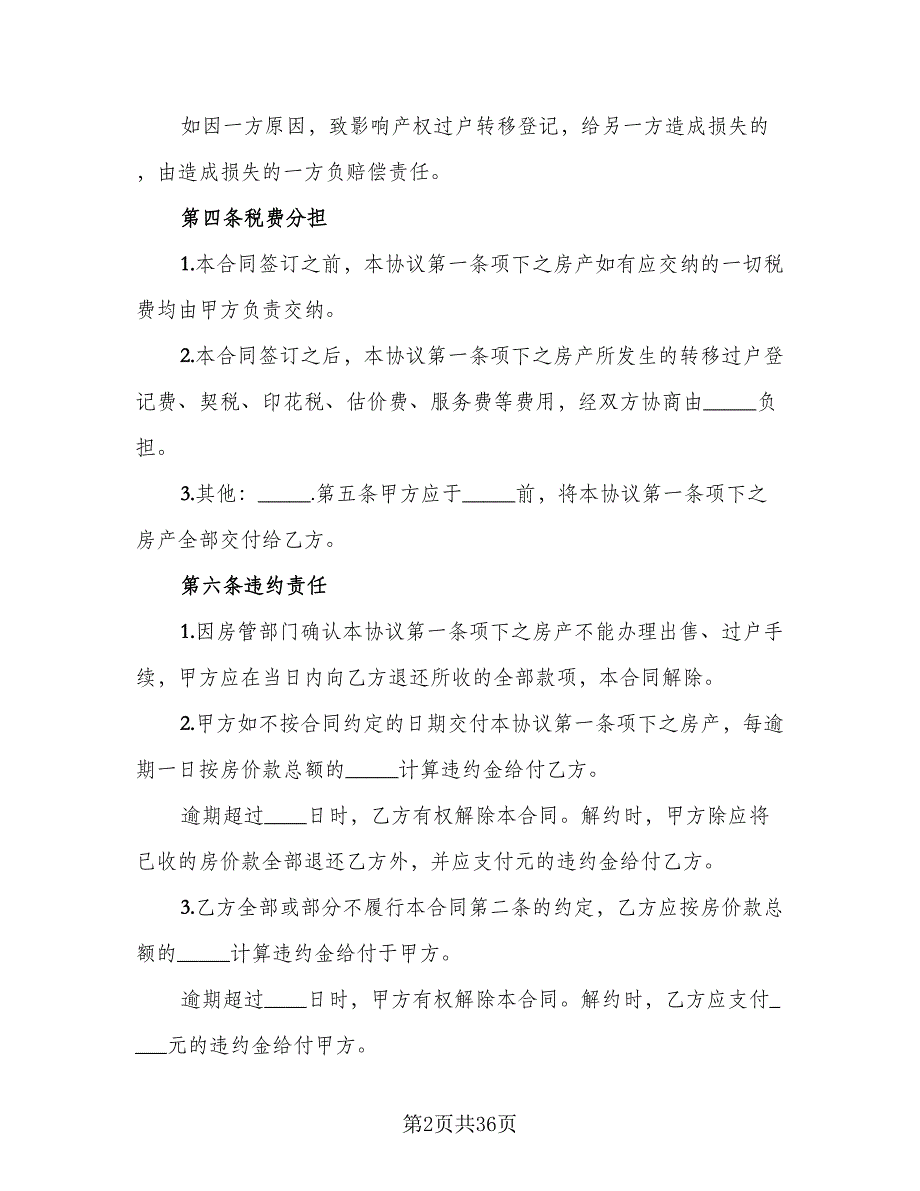 如因一方原因，致影响产权过户转移登记，给另一方造成损失的
，由造成损失的一方负赔偿责任。
第四条税费分担
1.本合同签订之前，本协议第一条项下之房产如有应交纳的一切税
费均由甲方负责交纳。
2.本合同签订之后，本协议第一条项下之房产所发生的转移过户登
记费、契税、印花税、估价费、服务费等费用，经双方协商由_____负
担。
3.其他：_____.第五条甲方应于_____前，将本协议第一条项下之
房产全部交付给乙方。
第六条违约责任
1.因房管部门确认本协议第一条项下之房产不能办理出售、过户手
续，甲方应在当日内向乙方退还所收的全部款项，本合同解除。
2.甲方如不按合同约定的日期交付本协议第一条项下之房产，每逾
期一日按房价款总额的_____计算违约金给付乙方。
逾期超过____日时，乙方有权解除本合同。解约时，甲方除应将
已收的房价款全部退还乙方外，并应支付元的违约金给付乙方。
3.乙方全部或部分不履行本合同第二条的约定，乙方应按房价款总
额的_____计算违约金给付于甲方。
逾期超过____日时，甲方有权解除本合同。解约时，乙方应支付_
___元的违约金给付甲方。
第2页共36页